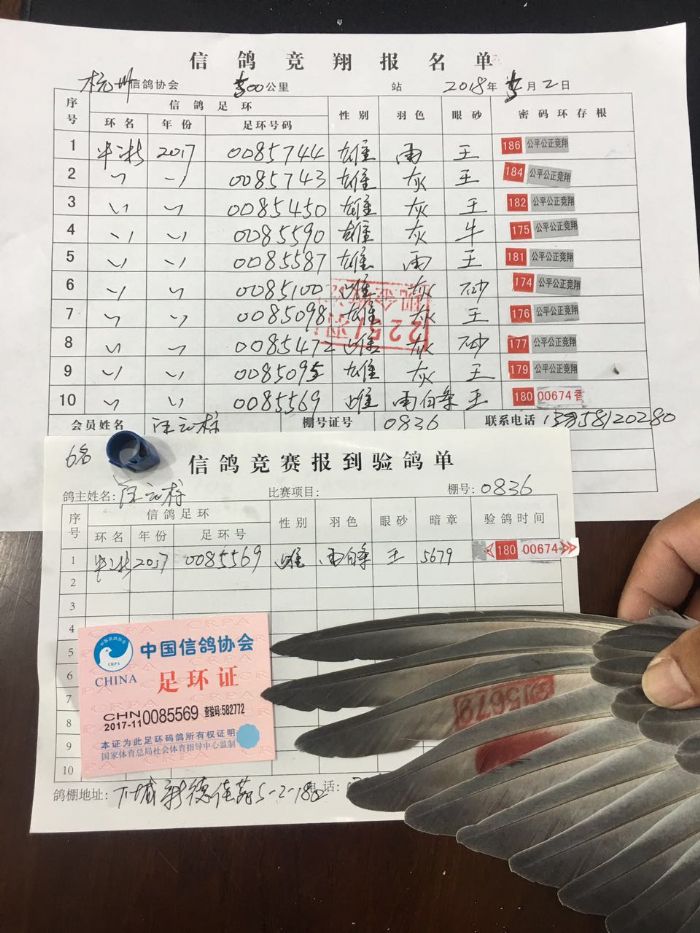 信鸽竞翔报名单
杭州信鸽协会 500公里 站 2018年5月2日
序号 信鸽足环 性别 羽色 眼砂 密码环存根
环名 年份 足环号码
1 2017 0085744 雄 雨 王 186 公平公正竞翔
2 〃 〃 0085743 雄 灰 王 184 公平公正竞翔
3 〃 〃 0085450 雄 灰 王 182 公平公正竞翔
4 〃 〃 0085590 雄 灰 牛 175 公平公正竞翔
5 〃 〃 0085587 雄 雨 王 181 公平公正竞翔
6 〃 〃 0085100 雌 灰 砂 174 公平公正竞翔
7 〃 〃 0085098 雄 灰 王 176 公平公正竞翔
8 〃 〃 0085472 雌 灰 砂 177 公平公正竞翔
9 〃 〃 0085095 雄 灰 王 179 公平公正竞翔
10 〃 〃 0085569 雌 雨白条 王 180 00674
会员姓名 汪云栋 棚号证号 0836 联系电话 15858120280
6名
信鸽竞赛报到验鸽单
鸽主姓名: 汪云栋 比赛项目: 棚号: 0836
序号 信鸽足环 性别 羽色 眼砂 暗章 验鸽时间
环名 年份 足环号
1 2017 0085569 雌 雨白条 王 5679 180 00674
2
3
4
5
6
7
8
9
10
中国信鸽协会
CHINA
足环证
CHN
2017-11 0085569 查验码:582772
本证为此足环码鸽所有权证明
国家体育总局社会体育指导中心监制
5679
鸽棚地址: 下城新德佳苑5-2-182 电话: